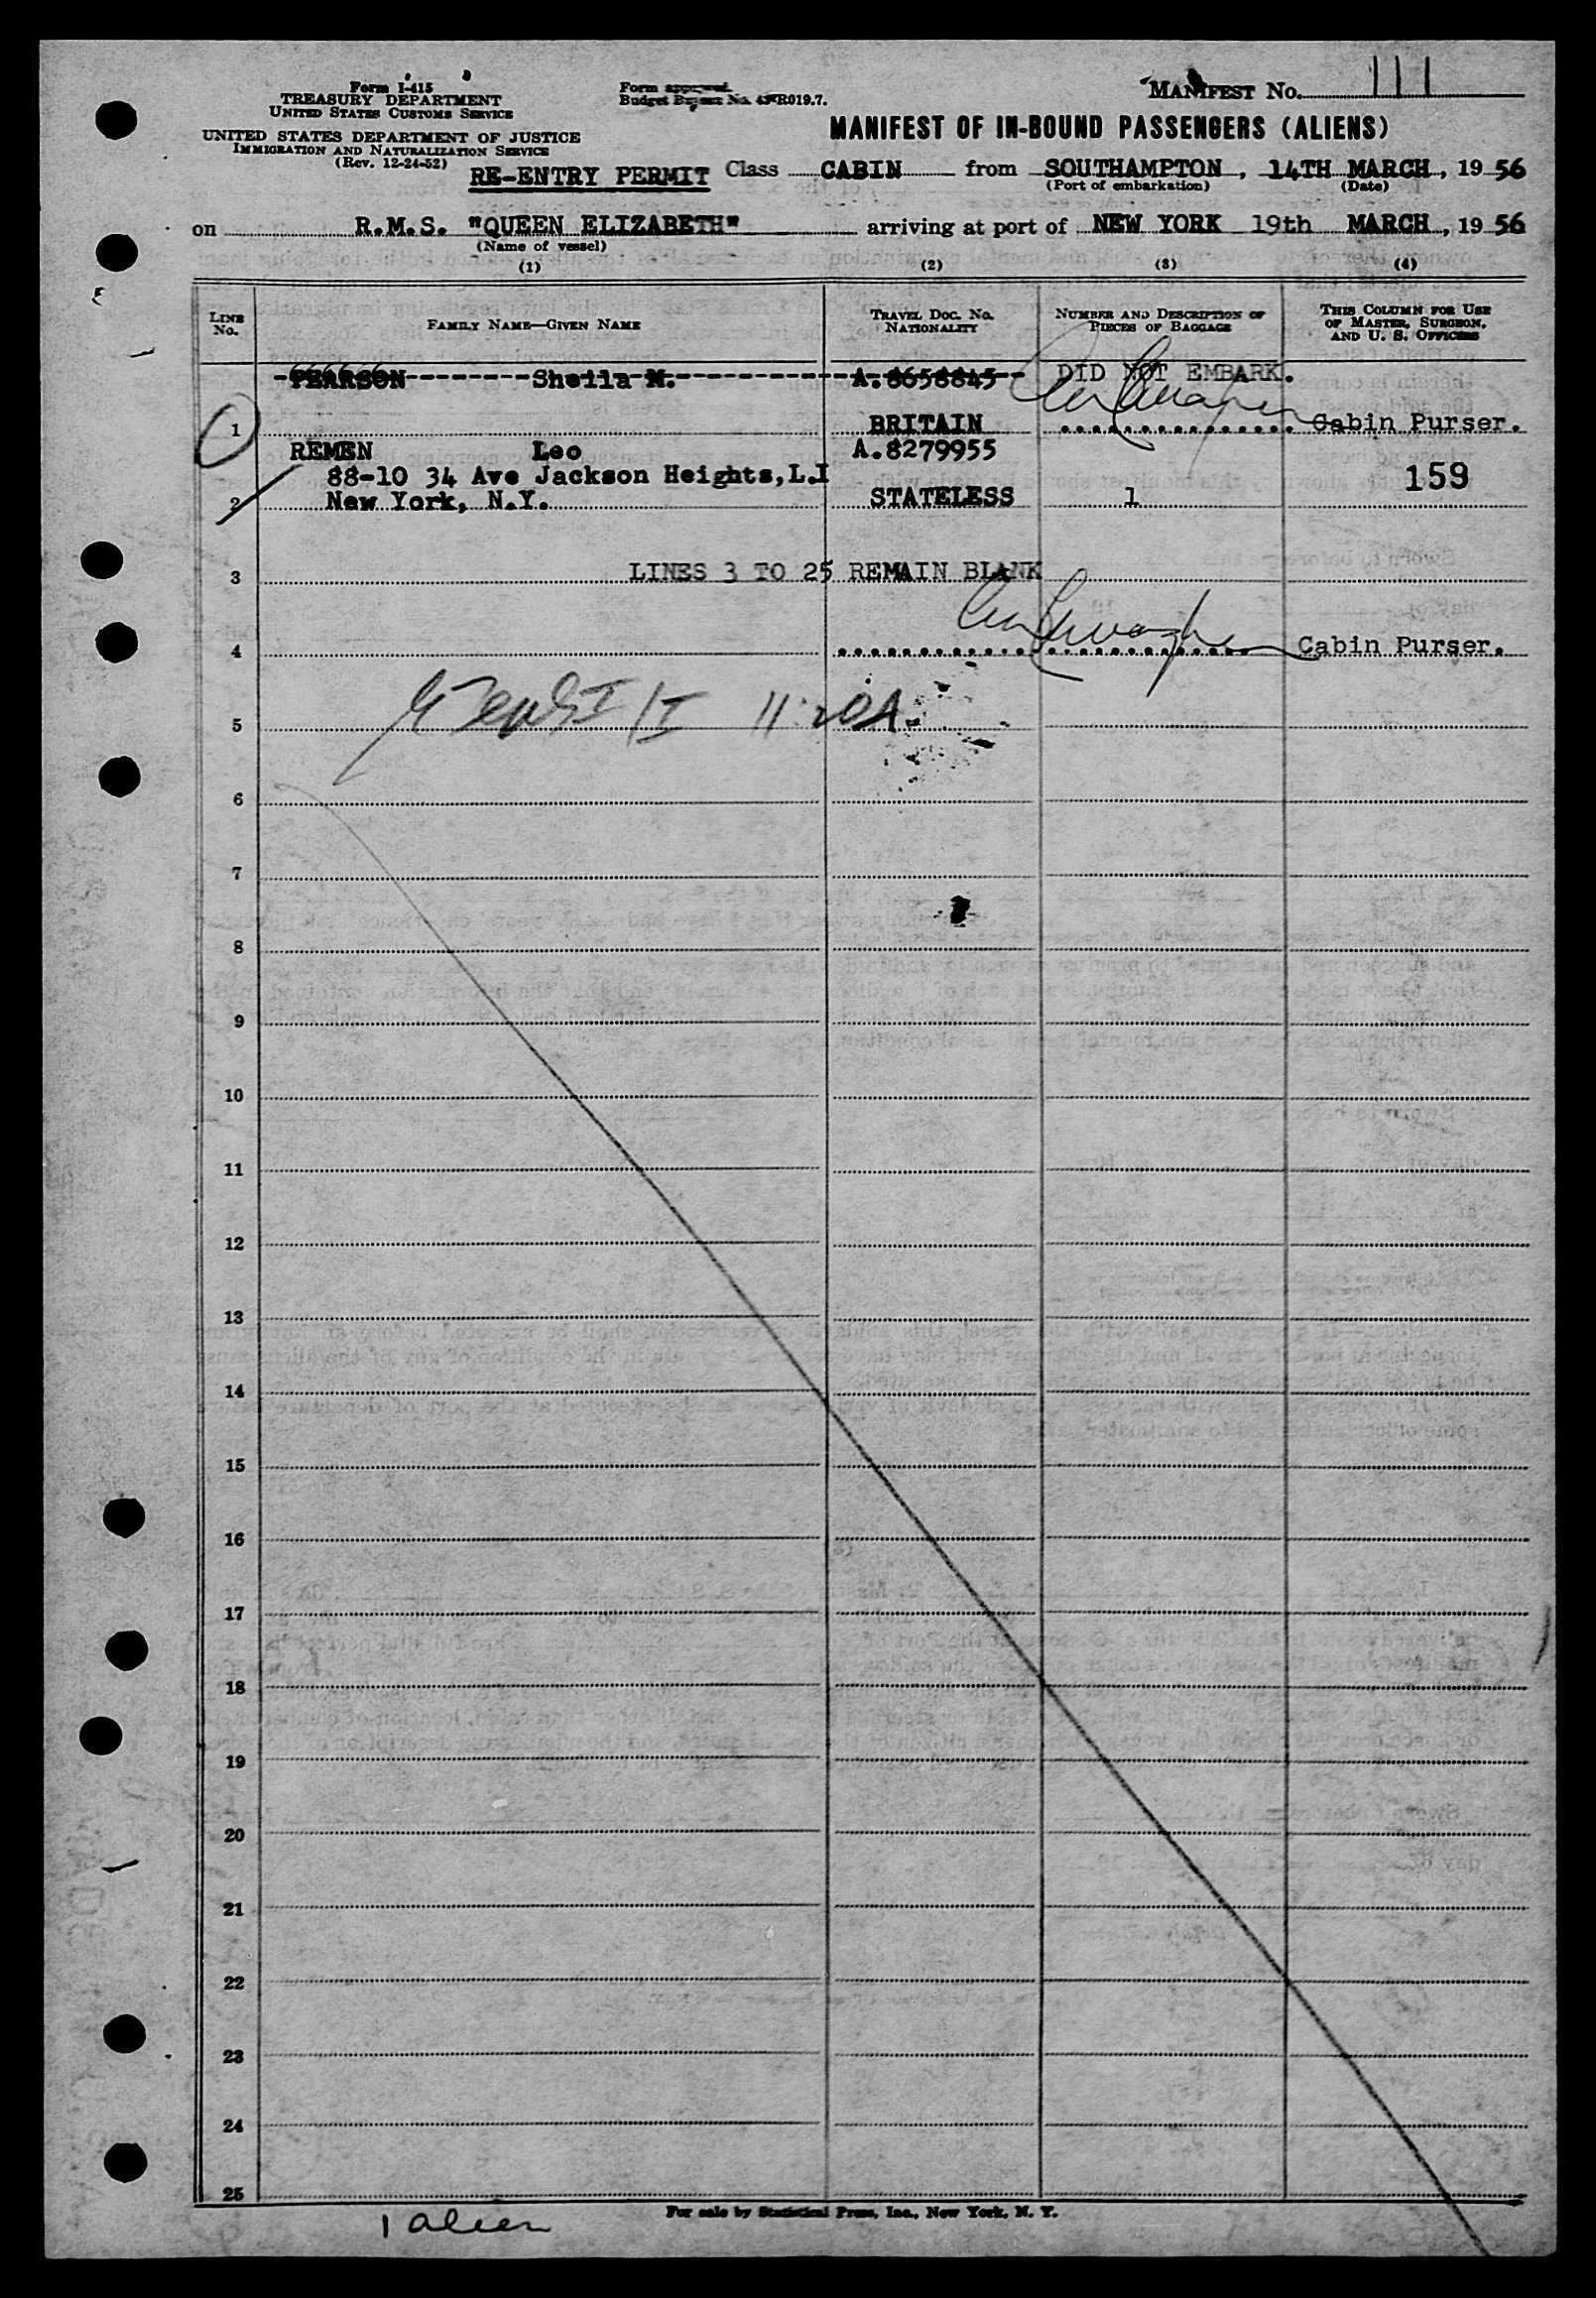 Form I-415
TREASURY DEPARTMENT
UNITED STATES CUSTOMS SERVICE
UNITED STATES DEPARTMENT OF JUSTICE
IMMIGRATION AND NATURALIZATION SERVICE
(Rev. 12-24-52)
Form approved.
Budget Bureau No. 43-R019.7.
MANIFEST No. 111
MANIFEST OF IN-BOUND PASSENGERS (ALIENS)
RE-ENTRY PERMIT Class CABIN from SOUTHAMPTON, 14TH MARCH, 19 56
(Port of embarkation) (Date)
on R.M.S. "QUEEN ELIZABETH" arriving at port of NEW YORK 19th MARCH, 19 56
(Name of vessel)
(1) (2) (3) (4)
LINE No. FAMILY NAME—GIVEN NAME TRAVEL DOC. NO. NATIONALITY NUMBER AND DESCRIPTION OF PIECES OF BAGGAGE THIS COLUMN FOR USE OF MASTER, SURGEON, AND U. S. OFFICERS
PEARSON Sheila M. A.8658845 DID NOT EMBARK.
1 BRITAIN Cabin Purser.
REMEN Leo A.8279955
88-10 34 Ave Jackson Heights, L.I 159
2 New York, N.Y. STATELESS 1
3 LINES 3 TO 25 REMAIN BLANK
4 Cabin Purser.
5
6
7
8
9
10
11
12
13
14
15
16
17
18
19
20
21
22
23
24
25
For sale by Statistical Press, Inc., New York, N. Y.
1 alien